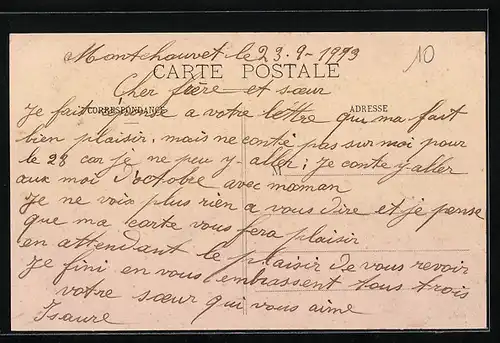 Montchauvet le 23-9-1993
10
CARTE POSTALE
Cher frère et sœur
CORRESPONDANCE
ADRESSE
Je fait réponse a votre lettre que ma fait
bien plaisir, mais ne conté pas sur moi pour
le 28 car je ne peu y-aller; Je conte y-aller
aux moi d'octobre avec maman
Je ne voix plus rien a vous dire et je pense
que ma carte vous fera plaisir
en attendant le plaisir de vous revoir
Je fini en vous embrassent tous trois
votre sœur qui vous aime
Isaure